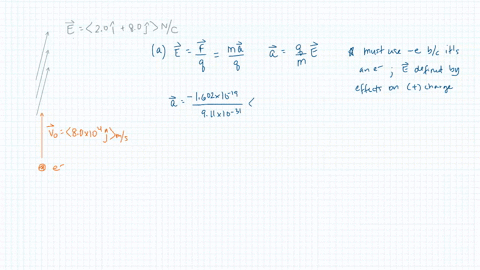 E⃗ = <2.0ĵ + 8.0ĵ> N/C
(a) E⃗ = F⃗/q = ma⃗/q a⃗ = q/m E⃗
* must use -e b/c it's
an e⁻ ; E⃗ defined by
effects on (+) charge
a⃗ = -1.602×10⁻¹⁹/9.11×10⁻³¹ <
V⃗₀ = <8.0×10⁴ ĵ> m/s
e⁻